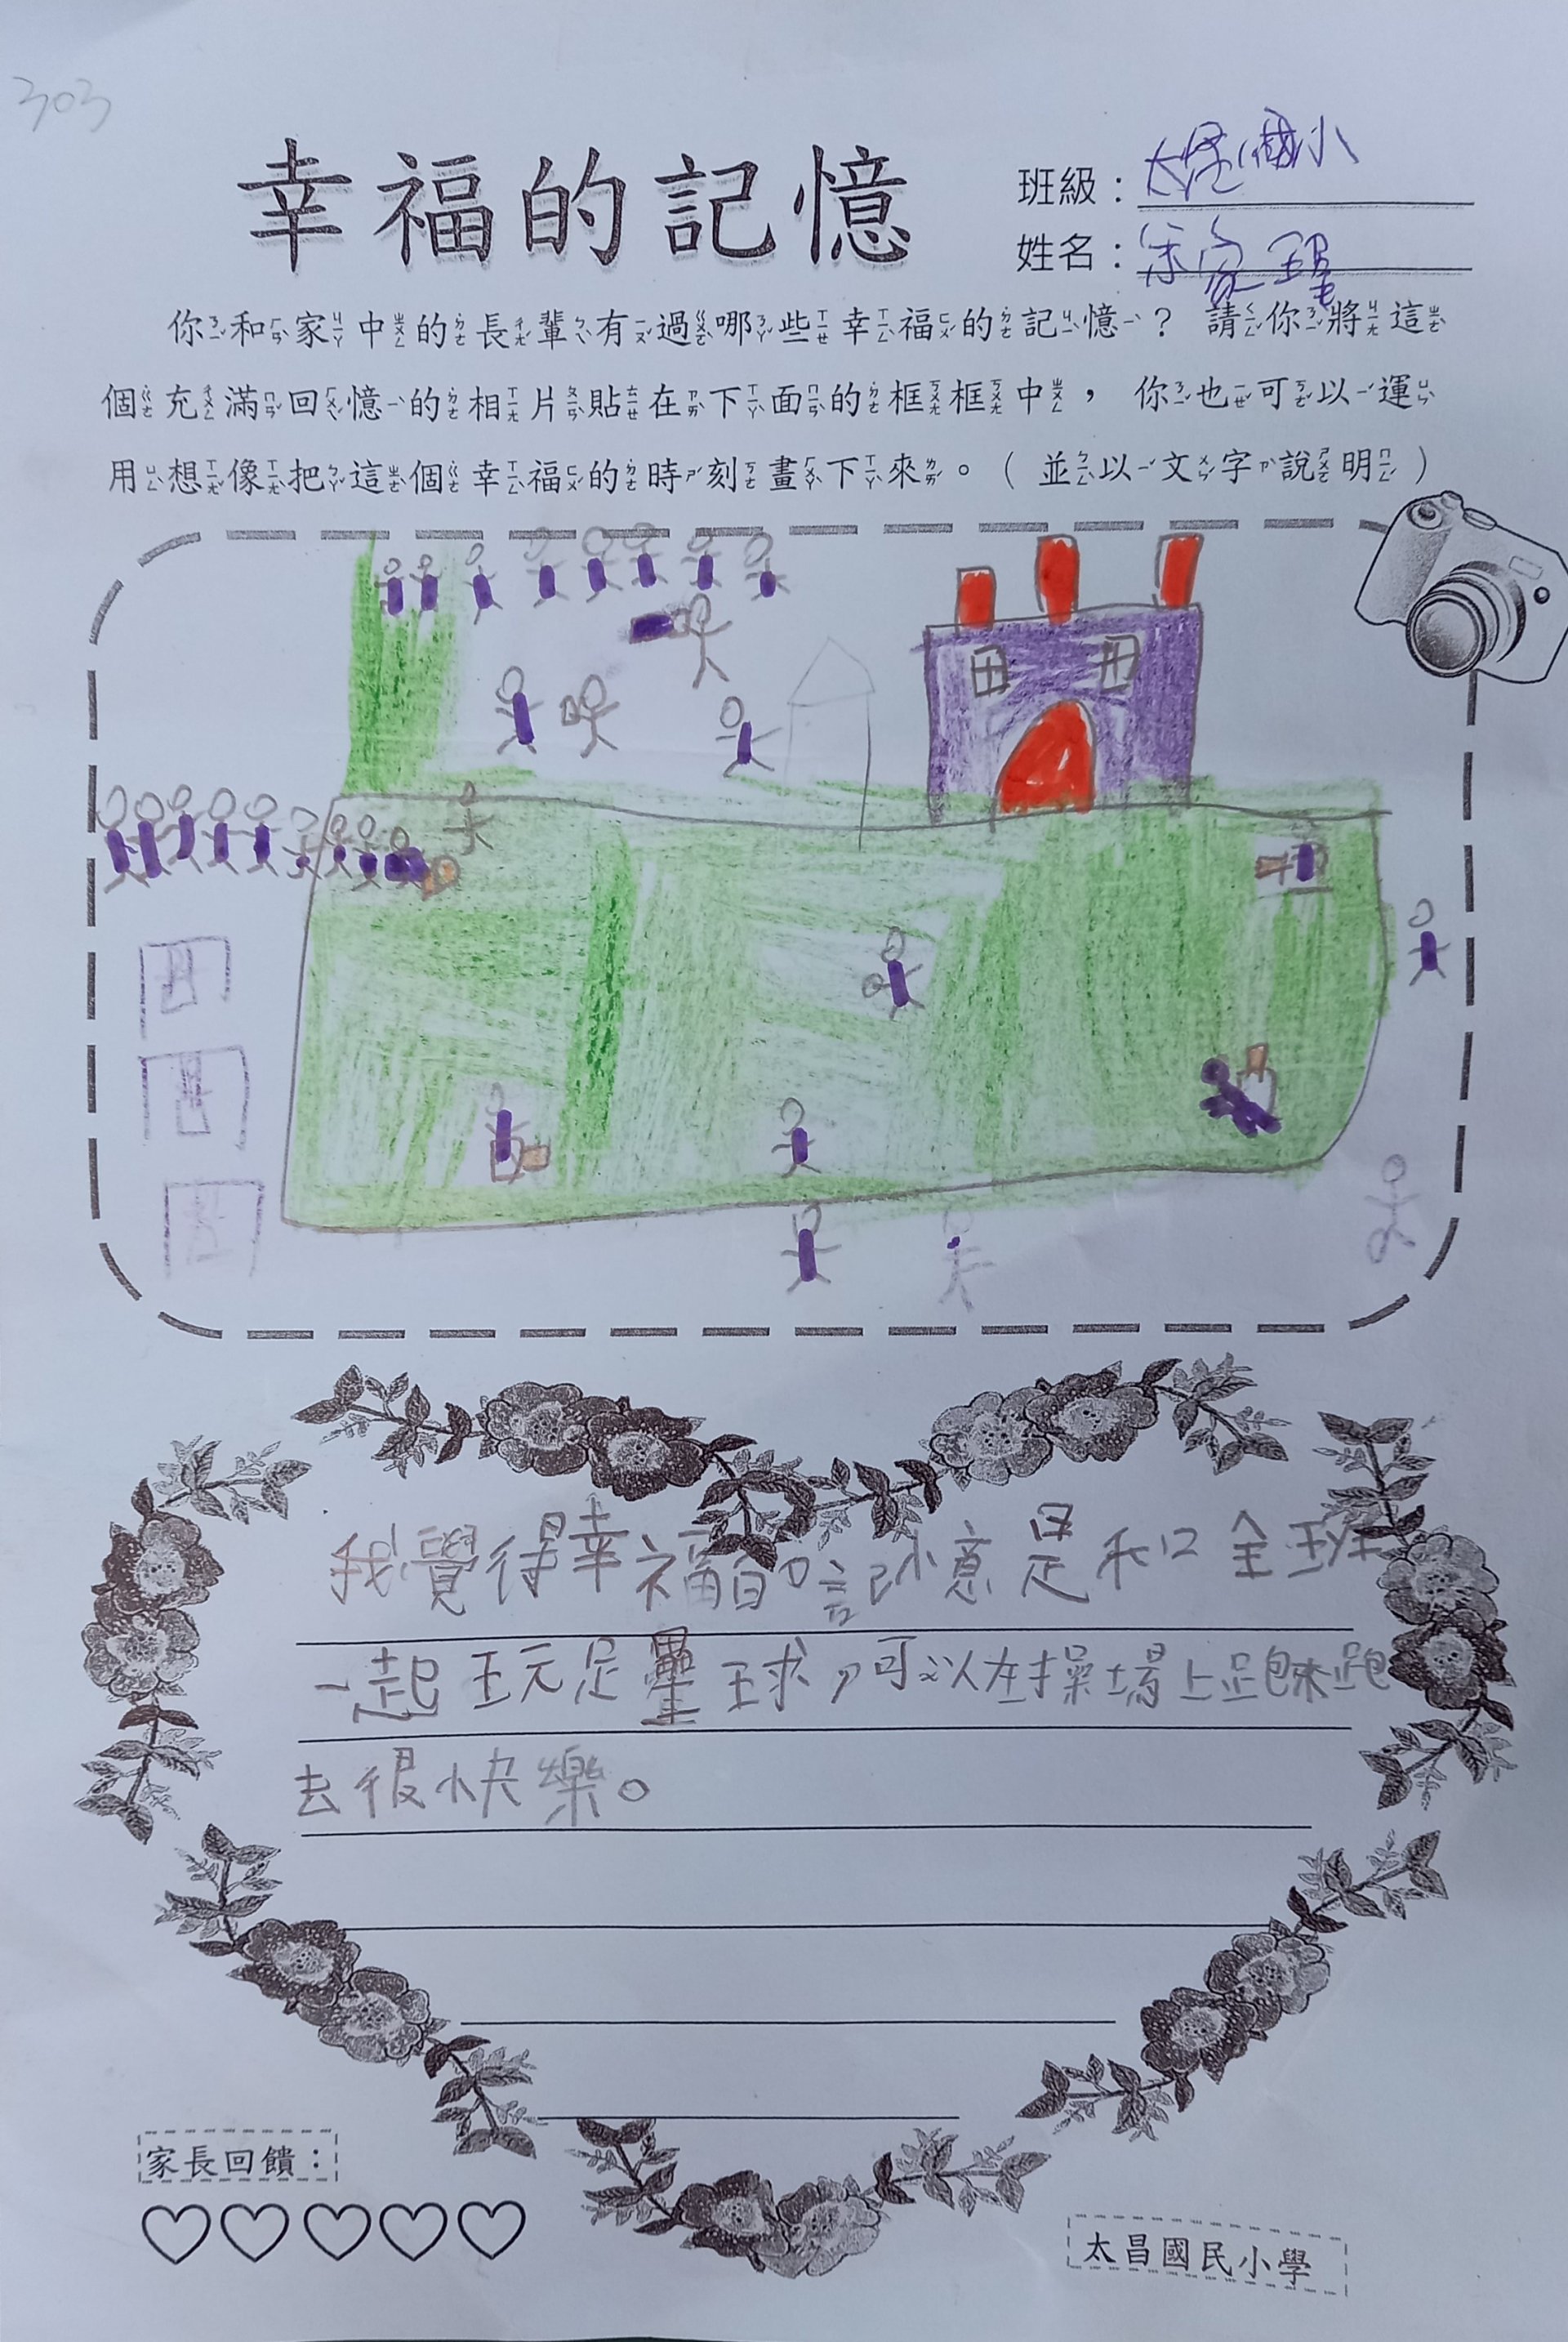 303
幸福的記憶
班級：
姓名：
你和家中的長輩有過哪些幸福的記憶？請你將這
個充滿回憶的相片貼在下面的框框中，你也可以運
用想像把這個幸福的時刻畫下來。（並以文字說明）
我覺得幸福的記憶是和全班
一起玩足壘球，可以在操場上跑來跑
去很快樂。
家長回饋：
太昌國民小學